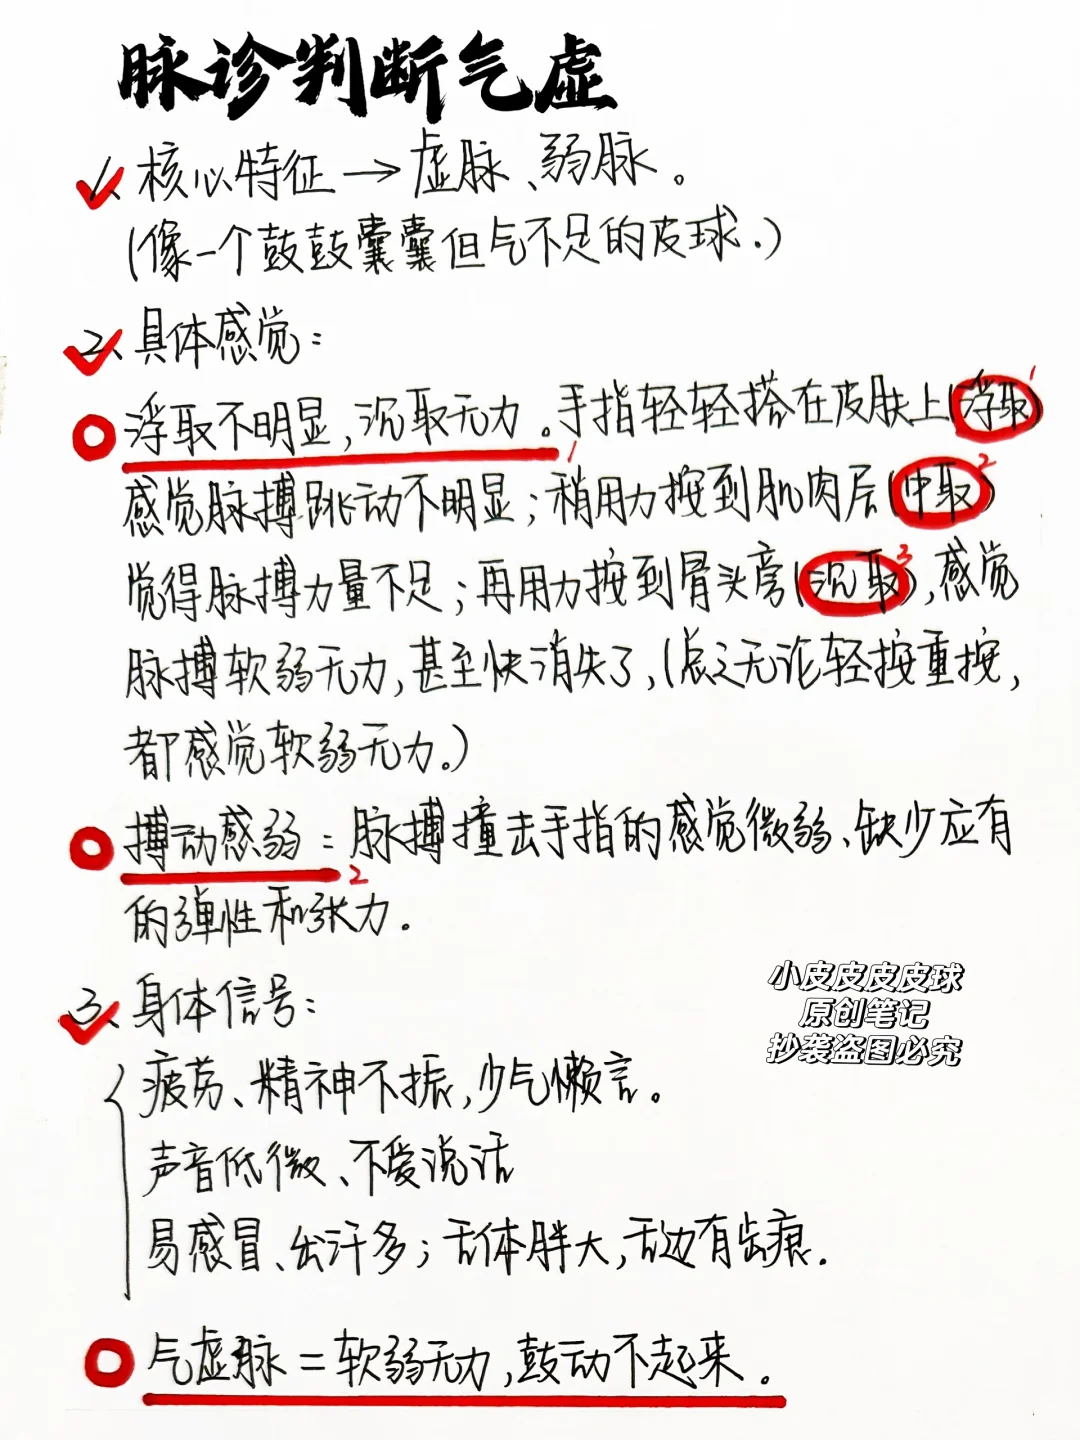 脉诊判断气虚
1、核心特征→虚脉、弱脉。
(像一个鼓鼓囊囊但气不足的皮球.)
2、具体感觉:
浮取不明显,沉取无力。手指轻轻搭在皮肤上(浮取)1
1
感觉脉搏跳动不明显;稍用力按到肌肉层(中取)2
觉得脉搏力量不足;再用力按到骨头旁(沉取)3,感觉
脉搏软弱无力,甚至快消失了,(总之无论轻按重按,
都感觉软弱无力。)
搏动感弱:脉搏撞击手指的感觉微弱、缺少应有
2
的弹性和张力.
小皮皮皮皮球
原创笔记
抄袭盗图必究
3、身体信号:
疲劳、精神不振,少气懒言。
声音低微、不爱说话
易感冒、出汗多;舌体胖大,舌边有齿痕.
气虚脉=软弱无力,鼓动不起来。